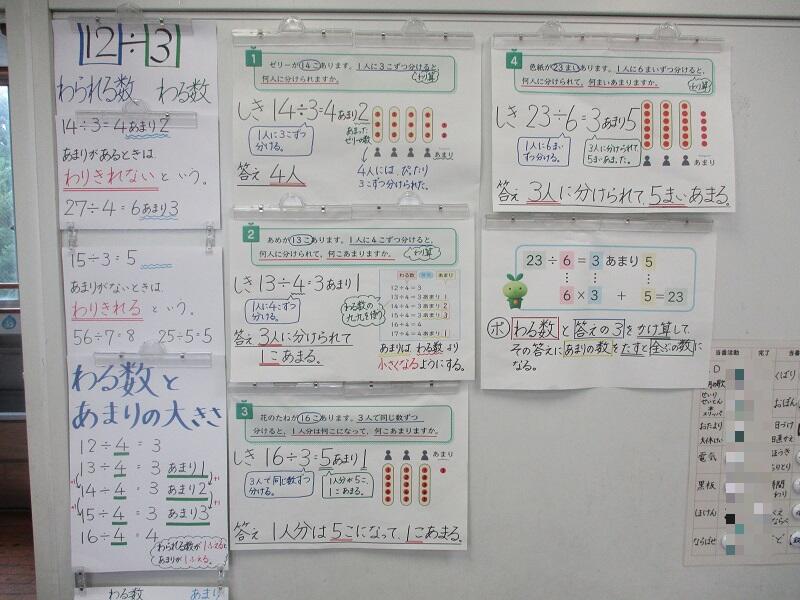 12÷3
わられる数 わる数
14÷3=4あまり2
あまりがあるときは
わりきれない という。
27÷4=6あまり3
15÷3=5
あまりがないときは
わりきれる という。
56÷7=8 25÷5=5
わる数と
あまりの大きさ
12÷4=3
13÷4=3 あまり1
14÷4=3 あまり2
15÷4=3 あまり3
16÷4=4
+1
+1
わられる数が1ふえると
あまりが1ふえる。
わる数 あまり
1
ゼリーが14こあります。1人に3こずつ分けると、
何人に分けられますか。
わり算
しき 14÷3=4あまり2
1人に3こずつ
分ける。
あまった
ゼリーの数
あまり
答え 4人
4人には、ぴったり
3こずつ分けられた。
2
あめが13こあります。1人に4こずつ分けると、
何人に分けられて、何こあまりますか。
わり算
しき 13÷4=3あまり1
1人に4こずつ
分ける。
わる数の
九九を使う
わる数 あまり
12÷4=3
13÷4=3あまり1
14÷4=3あまり2
15÷4=3あまり3
16÷4=4
17÷4=4あまり1
答え 3人に分けられて
1こあまる。
あまりは わる数より
小さくなるようにする。
3
花のたねが16こあります。3人で同じ数ずつ
分けると、1人分は何こになって、何こあまりますか。
しき 16÷3=5あまり1
3人で同じ数ずつ
分ける。
1人分が5こ、
1こあまる。
あまり
答え 1人分は5こになって、1こあまる。
4
色紙が23まいあります。1人に6まいずつ分けると、
何人に分けられて、何まいあまりますか。
わり算
しき 23÷6=3あまり5
1人に6まい
ずつ分ける。
3人に分けられて
5まいあまった。
あまり
答え 3人に分けられて、5まいあまる。
23÷6=3 あまり 5
6×3 + 5=23
ポ わる数 と 答えの3 をかけ算して、
その答えに あまりの数 を たすと 全ぶの数 に
なる。
当番活動 完了 当番
くばり
おたより
電気
黒板
ほけん
ならばせ